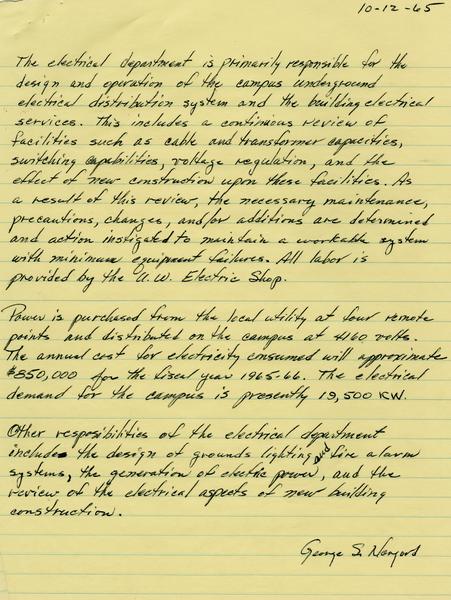 10-12-65
The electrical department is primarily responsible for the
design and operation of the campus underground
electrical distribution system and the building electrical
services. This includes a continuous review of
facilities such as cable and transformer capacities,
switching capabilities, voltage regulation, and the
effect of new construction upon these facilities. As
a result of this review, the necessary maintenance,
precautions, changes, and/or additions are determined
and action instigated to maintain a workable system
with minimum equipment failures. All labor is
provided by the U.W. Electric Shop.
Power is purchased from the local utility at four remote
points and distributed on the campus at 4160 volts.
The annual cost for electricity consumed will approximate
$850,000 for the fiscal year 1965-66. The electrical
demand for the campus is presently 19,500 KW.
Other resposibilities of the electrical department
include the design of grounds lighting and fire alarm
systems, the generation of electric power, and the
review of the electrical aspects of new building
construction.
George S.